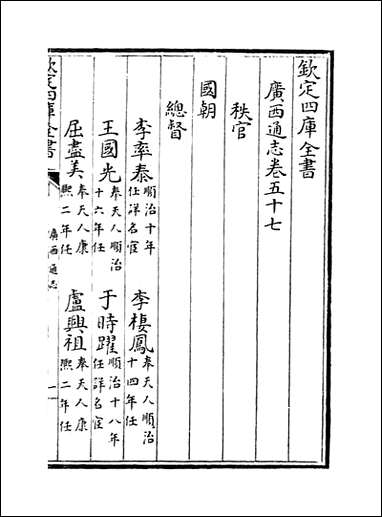 欽定四庫全書
廣西通志卷五十七
秩官
國朝
總督
李率泰 順治十年任詳名宦 李棲鳳 奉天人順治十四年任
王國光 奉天人順治十六年任 于時躍 順治十八年任詳名宦
屈盡美 奉天人康熙二年任 盧興祖 奉天人康熙二年任
欽定四庫全書 廣西通志 一